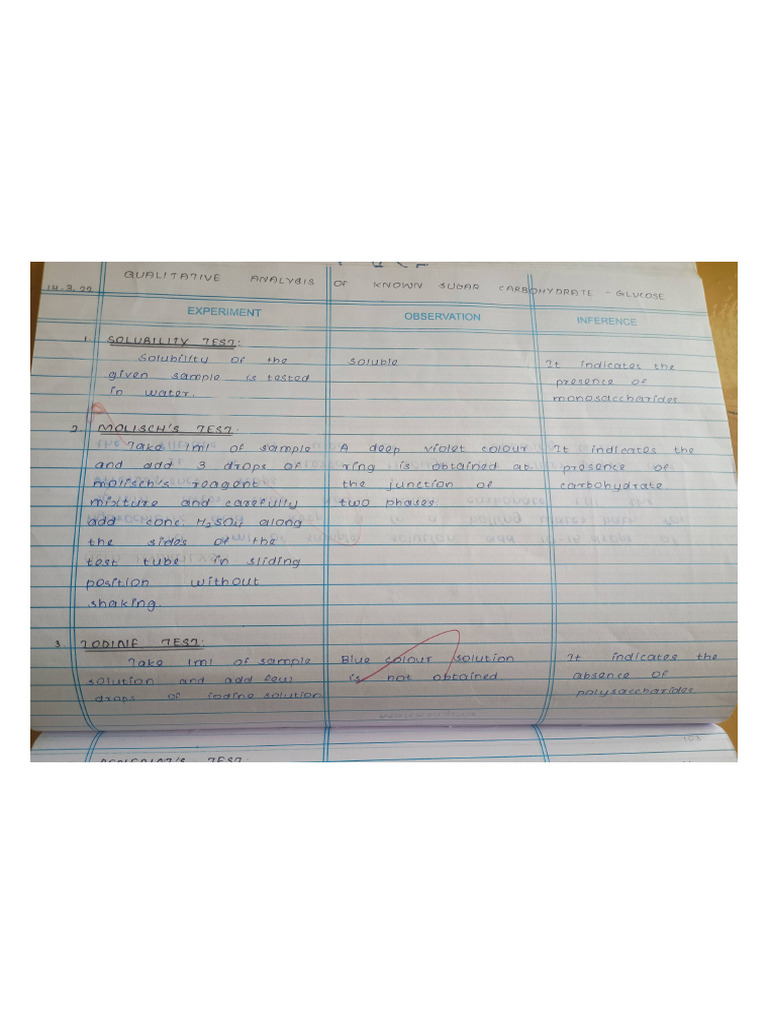 QUALITATIVE ANALYSIS OF KNOWN SUGAR CARBOHYDRATE - GLUCOSE
14.3.22
EXPERIMENT OBSERVATION INFERENCE
1. SOLUBILITY TEST:
Solubility of the soluble It indicates the
given sample is tested presence of
in water. monosaccharides
2. MOLISCH'S TEST:
Take 1ml of sample A deep violet colour It indicates the
and add 3 drops of ring is obtained at presence of
molisch's reagent the junction of carbohydrate
mixture and carefully two phases.
add conc. H2SO4 along
the sides of the
test tube in sliding
position without
shaking.
3. IODINE TEST:
Take 1ml of sample Blue colour solution It indicates the
solution and add few is not obtained absence of
drops of iodine solution polysaccharides
TEST: